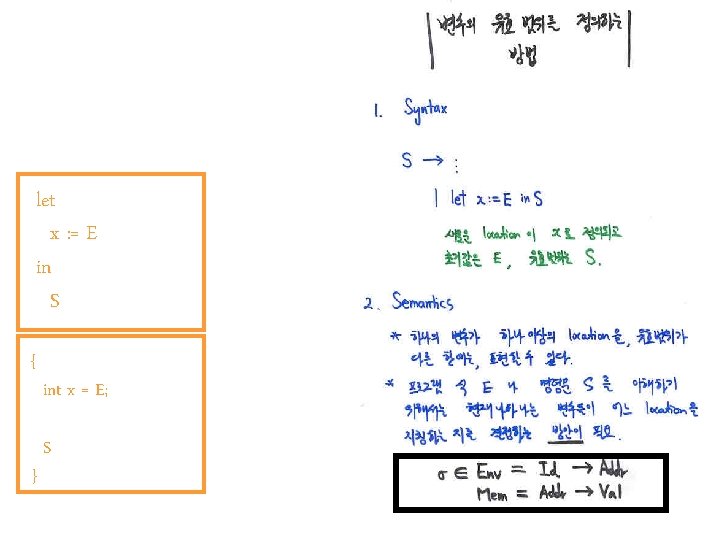 변수의 유효 범위를 정의하는
방법
1. Syntax
S → ⋮
| let x := E in S
새로운 location이 x로 정의되고
초기값은 E, 유효범위는 S.
2. Semantics
* 하나의 변수가 하나 이상의 location을, 유효범위가
다른 한에는, 표현할 수 있다.
* 프로그램 식 E 나 명령문 S 를 이해하기
위해서는 현재 나타나는 변수들이 어느 location을
지칭하는 지를 결정하는 방안이 필요.
σ ∈ Env = Id → Addr
Mem = Addr → Val
let
x := E
in
S
{
int x = E;
S
}